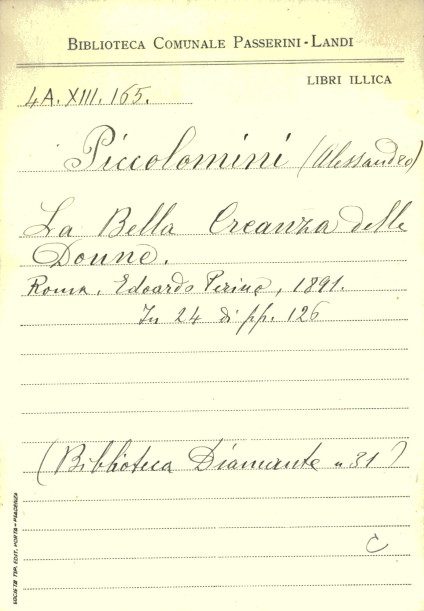 BIBLIOTECA COMUNALE PASSERINI-LANDI
LIBRI ILLICA
4A. XIII. 165.
Piccolomini (Alessandro)
La Bella Creanza delle
Donne.
Roma, Edoardo Perino, 1891.
In 24 di pp. 126
(Biblioteca Diamante n 31)
C
SOCIETÀ TIP. EDIT. PORTA - PIACENZA